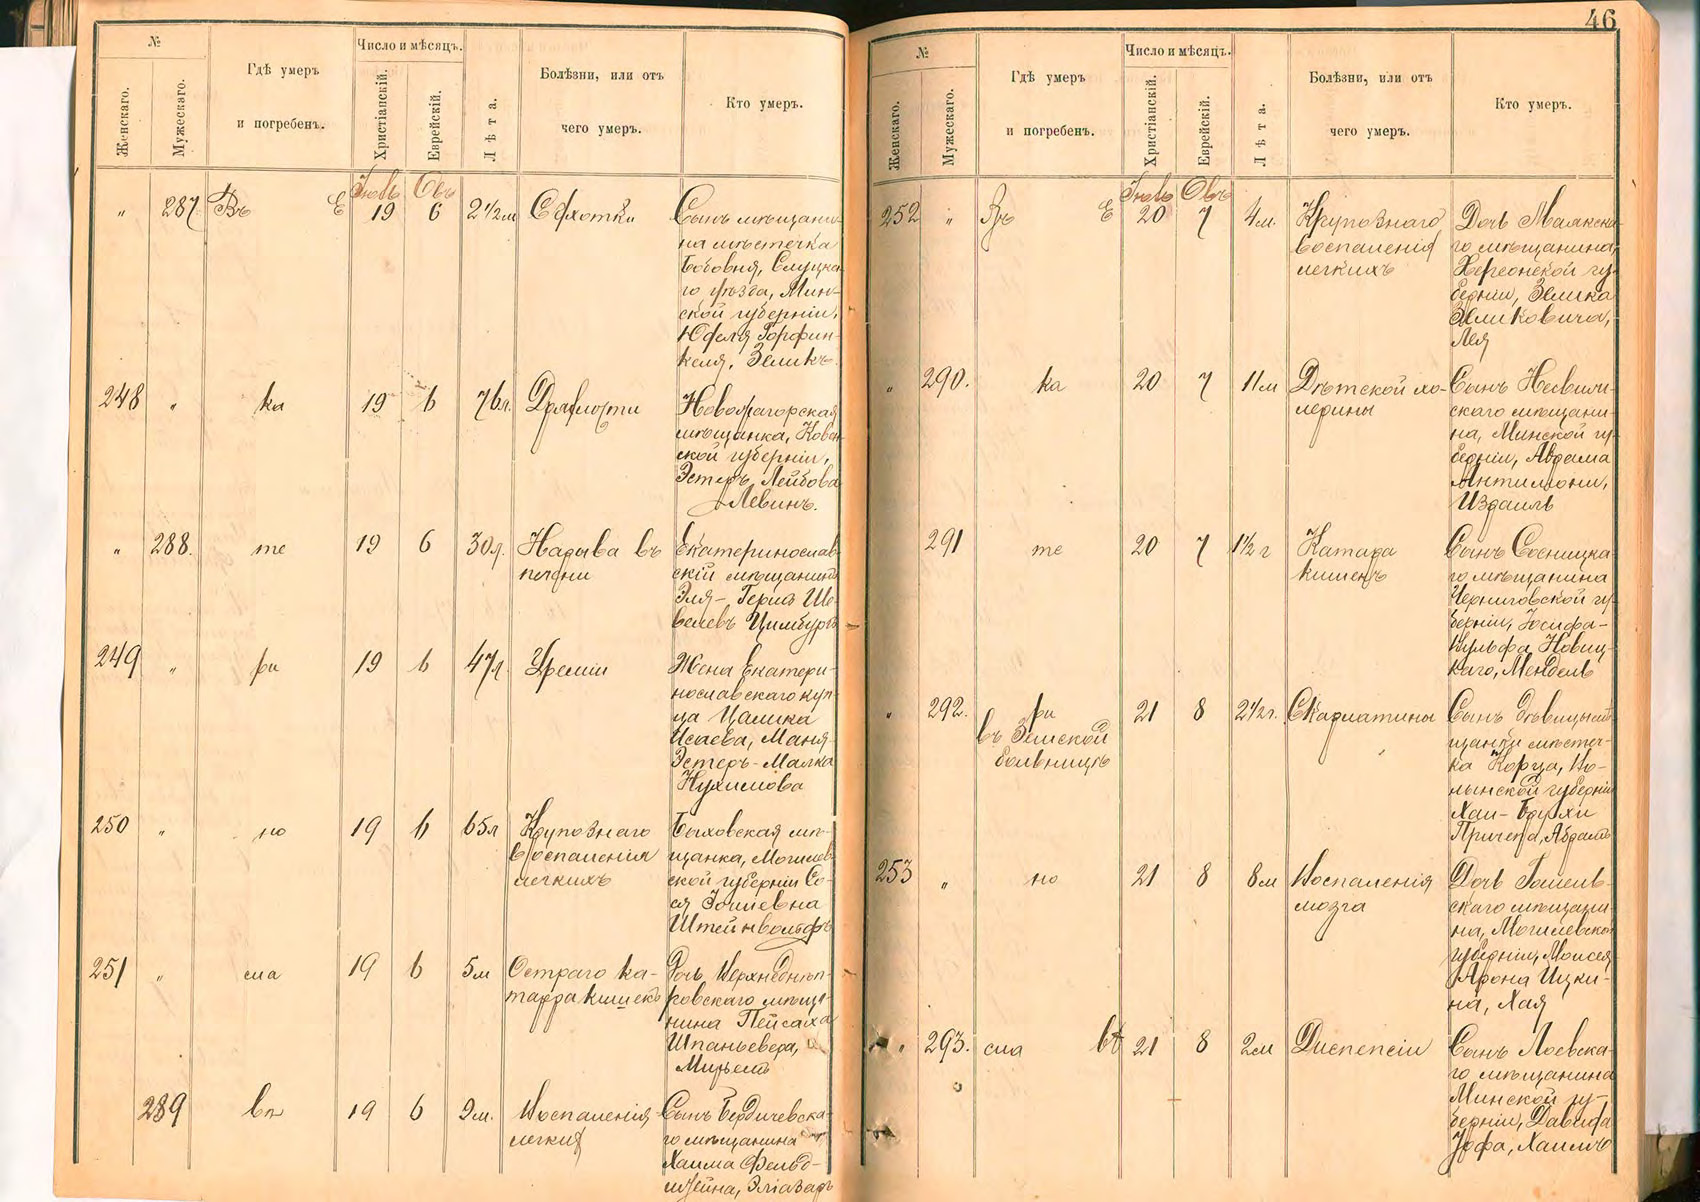 46
№
Женскаго.
Мужескаго.
Гдѣ умеръ
и погребенъ.
Число и мѣсяцъ.
Христіанскій.
Еврейскій.
Лѣта.
Болѣзни, или отъ
чего умеръ.
Кто умеръ.
„ 287 Въ Е 19 6 2½м
Сынъ мѣщани-
на мѣстечка
Слуцка-
го уѣзда, Мин-
ской губерніи,
Юделя Горфин-
келя, Зеликъ.
248 „ ка 19 6 76л. Дряхлости
мѣщанка, Ковен-
ской губерніи,
Эстеръ Лейбова
Левинъ.
„ 288. те 19 6 30л. Нарыва въ
печени
Екатеринослав-
скій мѣщанинъ
Эля-Герцъ
Цимбургъ
249 „ ри 19 6 47л. Уреміи
Жена Екатери-
нославскаго куп-
ца Цалика
Исаева, Маня-
Эстеръ-Малка
Нухимова
250 „ но 19 6 65л Крупознаго
воспаленія
легкихъ
Быховская мѣ-
щанка, Могилев-
ской губерніи Со-
ся
251 „ сла 19 6 5м Остраго ка-
тарра кишекъ
Дочь Верхнеднѣп-
ровскаго мѣща-
нина Пейсаха
Шпаньевера,
289 вѣ 19 6 9м. Воспаленія
легкихъ
Сынъ Бердичевска-
го мѣщанина
Хаима Фельд-
штейна, Эліазаръ
№
Женскаго.
Мужескаго.
Гдѣ умеръ
и погребенъ.
Число и мѣсяцъ.
Христіанскій.
Еврейскій.
Лѣта.
Болѣзни, или отъ
чего умеръ.
Кто умеръ.
252 „ Въ Е 20 7 4м. Крупознаго
воспаленія
легкихъ
Дочь Маякска-
го мѣщанина,
Херсонской гу-
берніи, Зелика
Зеликовича,
Лея
„ 290. ка 20 7 11м Дѣтской хо-
лерины
Сынъ Несвиж-
скаго мѣщани-
на, Минской гу-
берніи, Абрама
Антимони,
Израиль
291 те 20 7 1½г Катара
кишекъ
Сынъ Сосницка-
го мѣщанина
Черниговской гу-
берніи, Іосифа-
Вульфа Новиц-
каго, Мендель
„ 292. ри 21 8 2½г. Скарлатины
въ Земской
больницѣ
Сынъ дѣвицы мѣ-
щанки мѣстеч-
ка Корца, Во-
лынской губерніи
Хаи-Брухи
Абрамъ
253 „ но 21 8 8м Воспаленія
мозга
Дочь Гомель-
скаго мѣщани-
на, Могилевской
губерніи, Моисея
Арона Ицки-
на, Хая
„ 293. сла вѣ 21 8 2м Диспепсіи
Сынъ Лоевска-
го мѣщанина
Минской гу-
берніи, Давида
Хаимъ